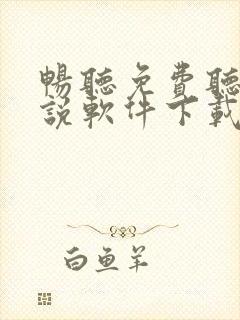 暢聽免費聽
說軟件下載
白魚羊